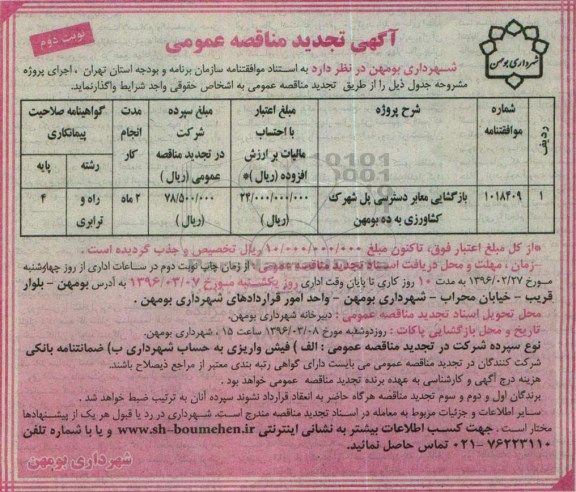 نوبت دوم
آگهی تجدید مناقصه عمومی
شهرداری بومهن
شهرداری بومهن در نظر دارد به استناد موافقتنامه سازمان برنامه و بودجه استان تهران ، اجرای پروژه
مشروحه جدول ذیل را از طریق تجدید مناقصه عمومی به اشخاص حقوقی واجد شرایط واگذارنماید.
ردیف | شماره موافقتنامه | شرح پروژه | مبلغ اعتبار با احتساب مالیات بر ارزش افزوده (ریال)* | مبلغ سپرده شرکت در تجدید مناقصه عمومی (ریال) | مدت انجام کار | گواهینامه صلاحیت پیمانکاری
رشته | پایه
۱ | ۱۰۱۸۴۰۹ | بازگشایی معابر دسترسی پل شهرک کشاورزی به ده بومهن | ۲۴/۰۰۰/۰۰۰/۰۰۰ (ریال) | ۷۸/۵۰۰/۰۰۰ (ریال) | ۲ ماه | راه و ترابری | ۴
*از کل مبلغ اعتبار فوق، تاکنون مبلغ ۱۰/۰۰۰/۰۰۰/۰۰۰ ریال تخصیص و جذب گردیده است .
-زمان ، مهلت و محل دریافت اسناد تجدید مناقصه عمومی : از زمان چاپ نوبت دوم در ساعات اداری از روز چهاوشنبه
مورخ ۱۳۹۶/۰۲/۲۷ به مدت ۱۰ روز کاری تا پایان وقت اداری روز یکشنبه مورخ ۱۳۹۶/۰۳/۰۷ به آدرس بومهن - بلوار
قریب - خیابان محراب - شهرداری بومهن - واحد امور قراردادهای شهرداری بومهن .
محل تحویل اسناد تجدید مناقصه عمومی : دبیرخانه شهرداری بومهن.
تاریخ و محل بازگشایی پاکات : روزدوشنبه مورخ ۱۳۹۶/۰۳/۰۸ ساعت ۱۵ ، شهرداری بومهن.
نوع سپرده شرکت در تجدید مناقصه عمومی : الف ) فیش واریزی به حساب شهرداری ب) ضمانتنامه بانکی
شرکت کنندگان در تجدید مناقصه عمومی می بایست دارای گواهی رتبه بندی معتبر از مراجع ذیصلاح باشند.
هزینه درج آگهی و کارشناسی به عهده برنده تجدید مناقصه عمومی خواهد بود .
برندگان اول و دوم و سوم تجدید مناقصه هرگاه حاضر به انعقاد قرارداد نشوند سپرده آنان به ترتیب ضبط خواهد شد .
سایر اطلاعات و جزئیات مربوط به معامله در اسناد تجدید مناقصه مندرج است. شهرداری در رد یا قبول هر یک از پیشنهادها
مختار است . جهت کسب اطلاعات بیشتر به نشانی اینترنتی www.sh-boumehen.ir و یا با شماره تلفن
۰۲۱-۷۶۲۲۳۱۱۰ تماس حاصل نمائید.
شهرداری بومهن